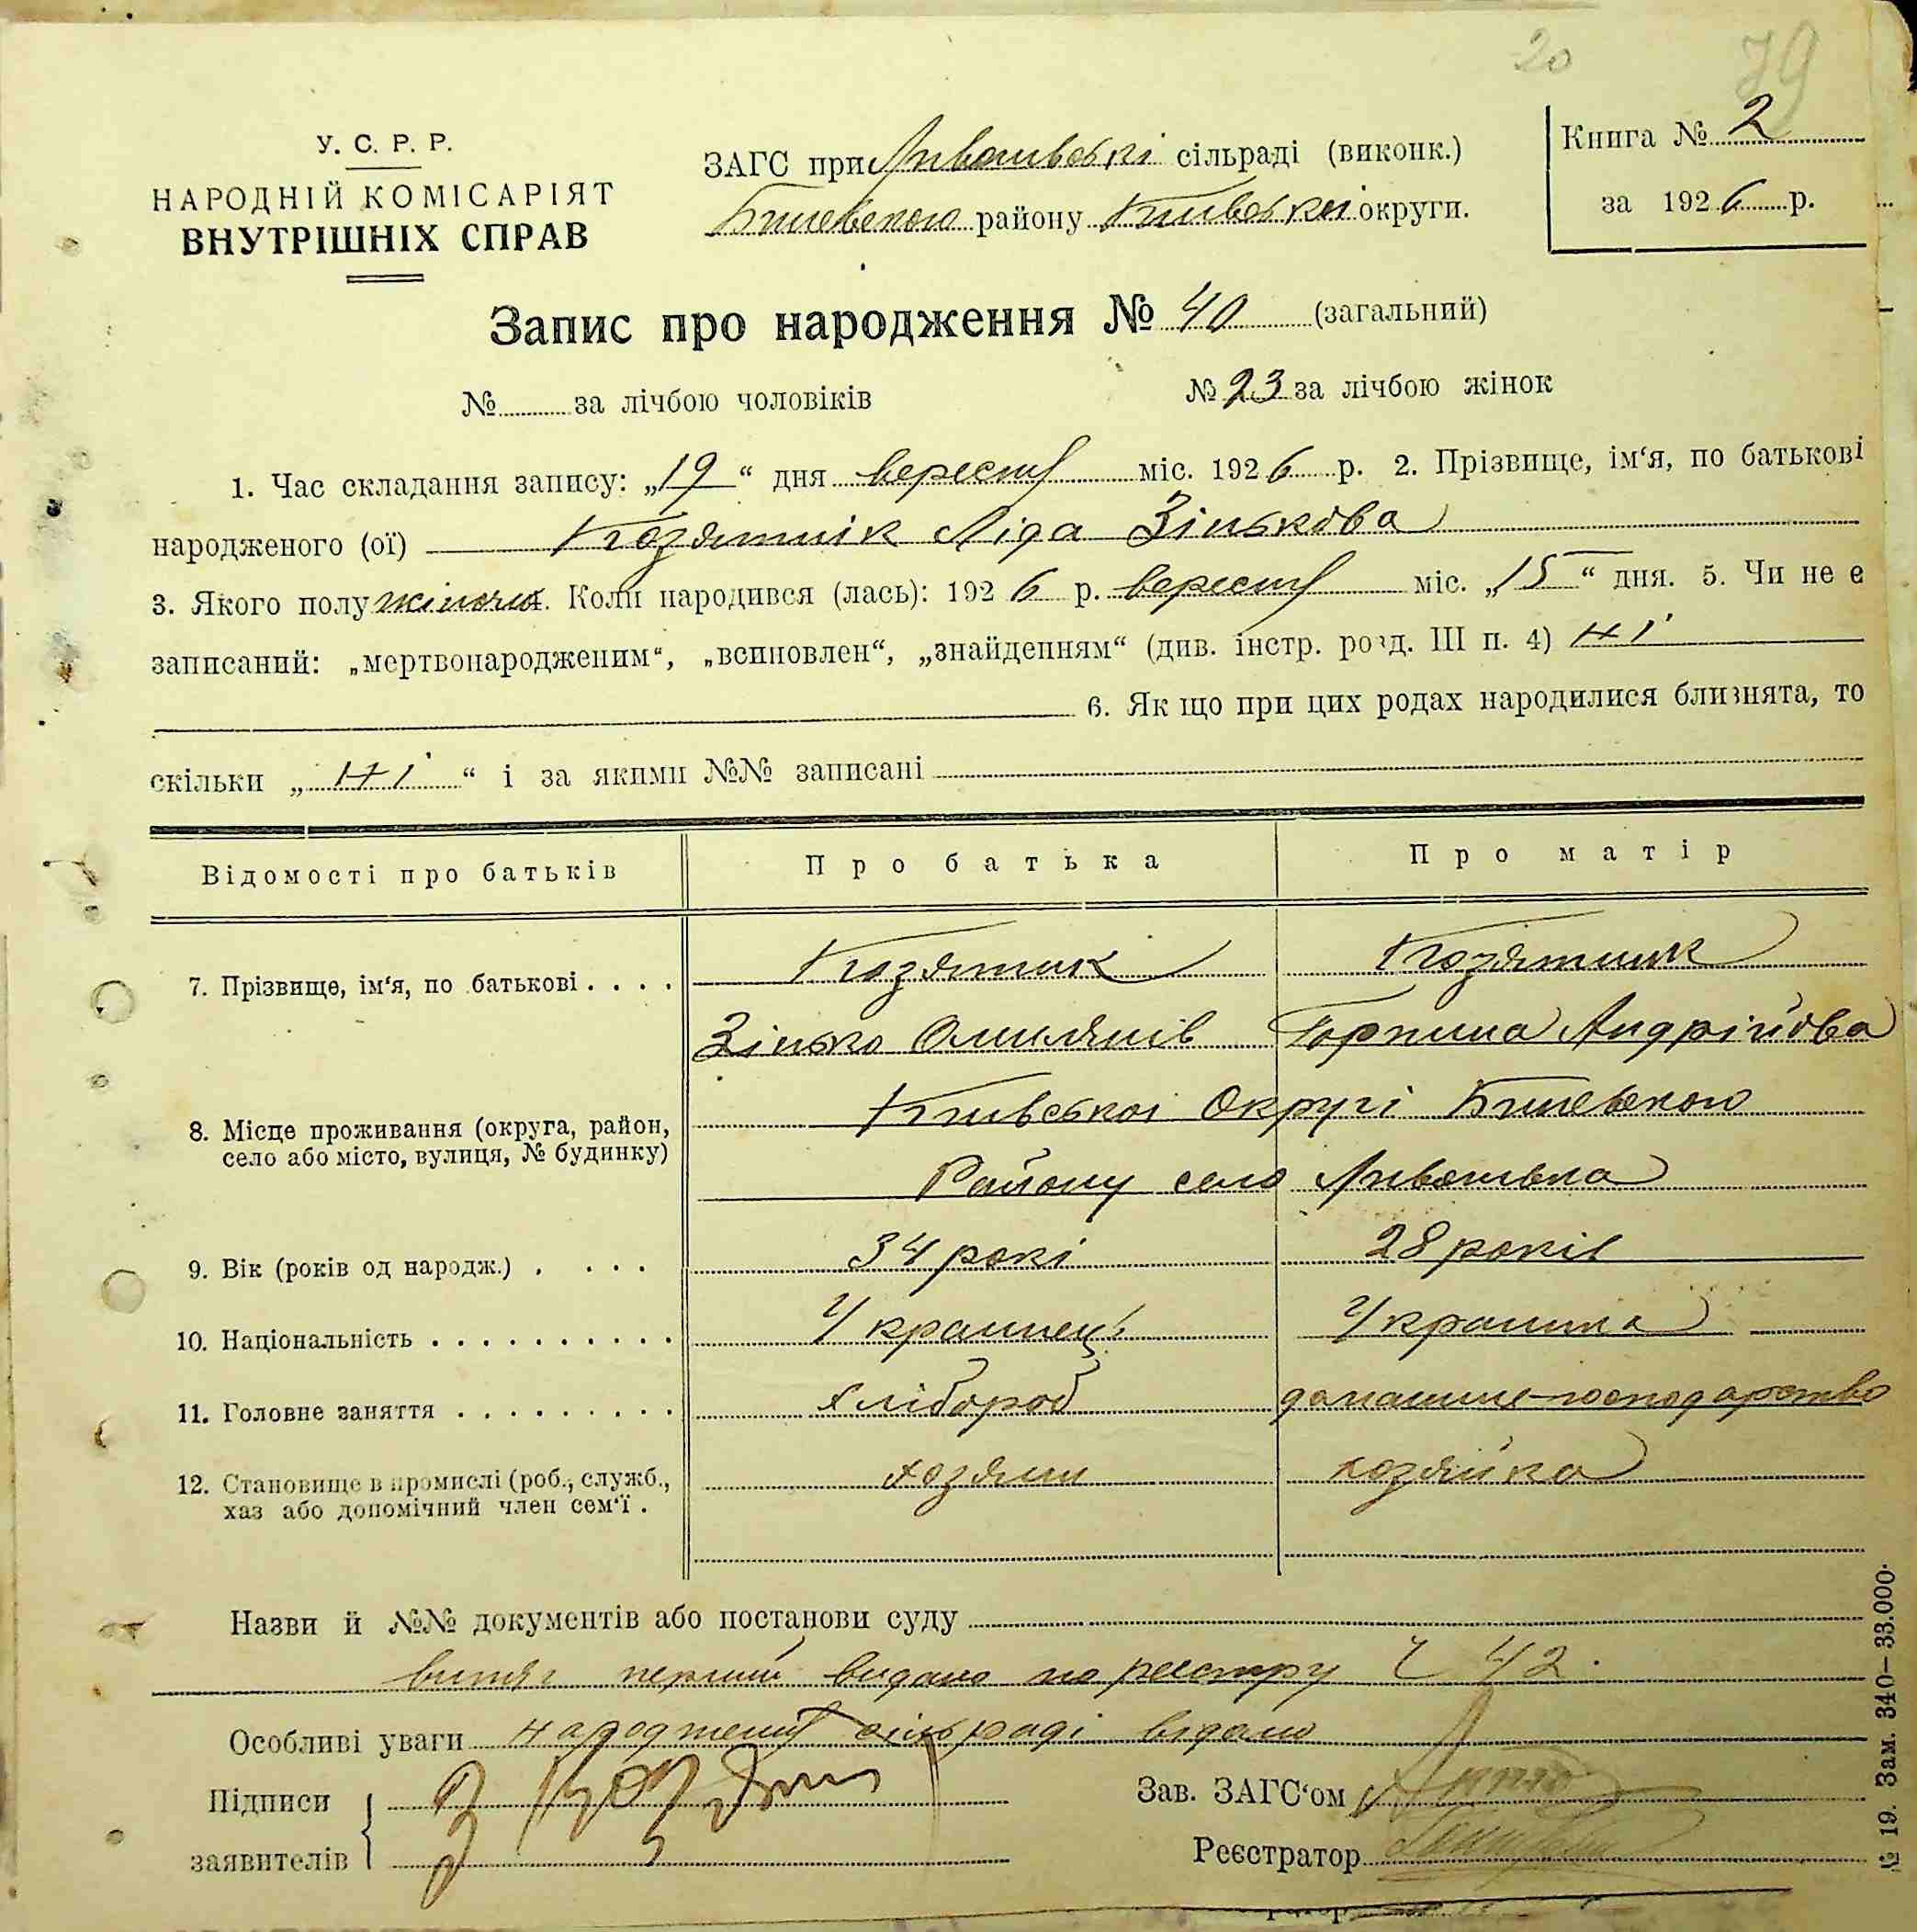 20 79
У. С. Р. Р.
НАРОДНІЙ КОМІСАРІЯТ
ВНУТРІШНІХ СПРАВ
ЗАГС при сільраді (виконк.)
району Київської округи.
Книга № 2
за 1926 р.
Запис про народження № 40 (загальний)
№ за лічбою чоловіків № 23 за лічбою жінок
1. Час складання запису: „19“ дня вересня міс. 1926 р. 2. Прізвище, ім‘я, по батькові
народженого (ої) Козятник Ліда Зінькова
3. Якого полу жіночя. Коли народився (лась): 1926 р. вересня міс. „15“ дня. 5. Чи не є
записаний: „мертвонародженим“, „всиновлен“, „знайденням“ (див. інстр. розд. III п. 4) Ні
6. Як що при цих родах народилися близнята, то
скільки „Ні“ і за якими №№ записані
Відомості про батьків Про батька Про матір
7. Прізвище, ім‘я, по батькові . . . . Козятник Козятник
Зінько Омилянів Горпина Андрійова
8. Місце проживання (округа, район, село або місто, вулиця, № будинку) Київської Округі
Району село
9. Вік (років од народж.) . . . . 34 рокі 28 років
10. Національність . . . . . . . . . . Украинець Украинка
11. Головне заняття . . . . . . . . . Хлібороб домашне-господарство
12. Становище в промислі (роб., служб., хаз або допомічний член сем‘ї . хозяин хозяйка
Назви й №№ документів або постанови суду
витяг перший видано по реєстру Ч 42.
Особливі уваги народження сільраді видано
Підписи
заявителів
Зав. ЗАГС‘ом
Реєстратор
№ 19. Зам. 340—33.000.